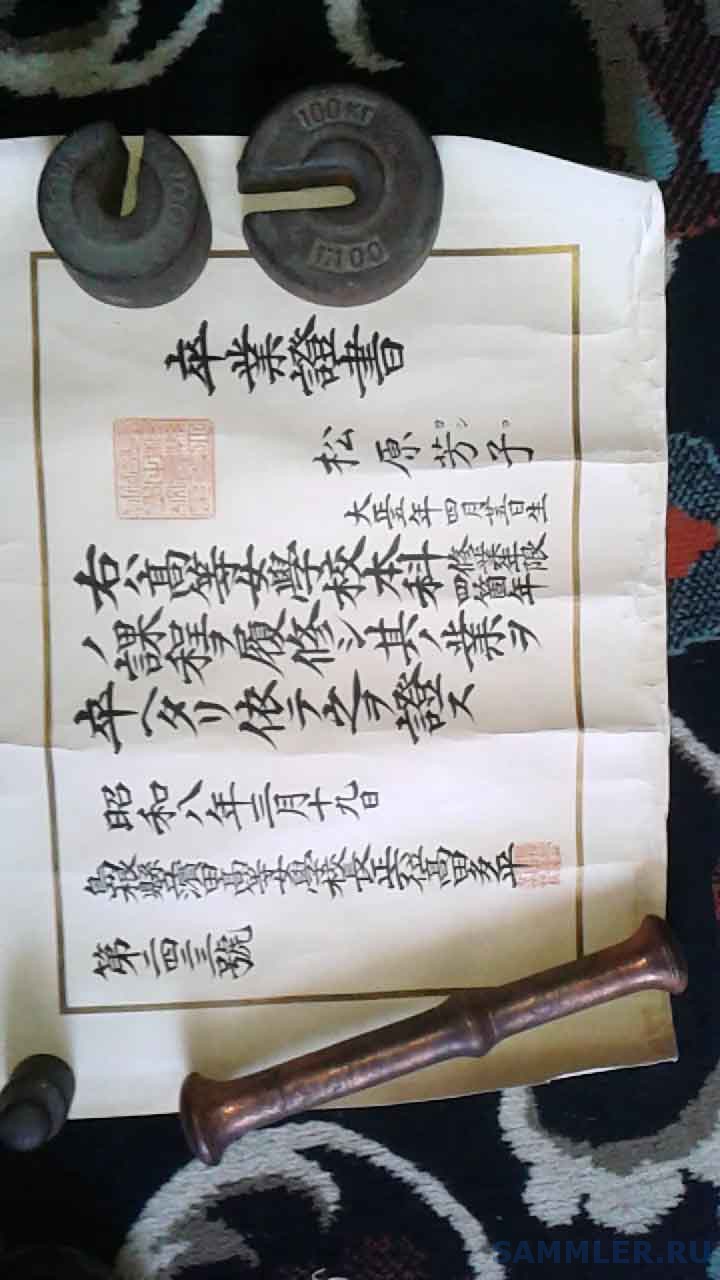 100КГ
1:100
100
卒業證書
松原芳子
大正五年四月廿五日生
右ハ高等女學校本科修業年限四箇年
ノ課程ヲ履修シ其ノ業ヲ
卒ヘタリ依テ之ヲ證ス
昭和八年三月十九日
島根縣立濱田高等女學校長正六位高田多平
第二四三號
SAMMLER.RU